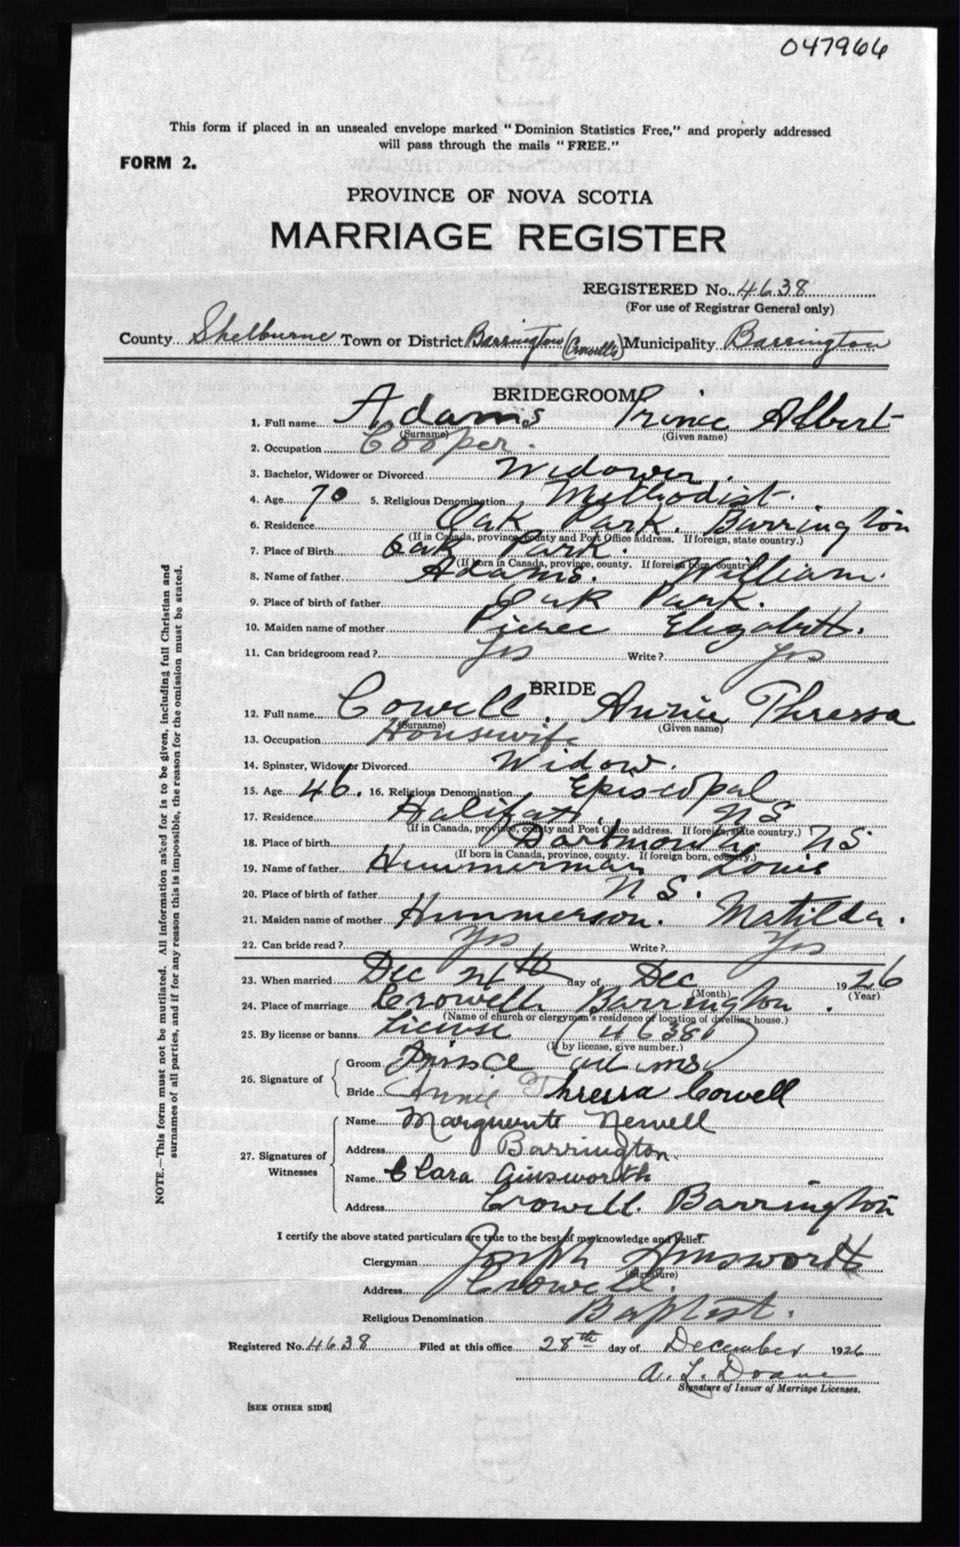 047966
This form if placed in an unsealed envelope marked "Dominion Statistics Free," and properly addressed
will pass through the mails "FREE."
FORM 2.
PROVINCE OF NOVA SCOTIA
MARRIAGE REGISTER
REGISTERED No. 4638
(For use of Registrar General only)
County Shelburne Town or District Barrington Municipality Barrington
BRIDEGROOM
1. Full name Adams Prince Albert
(Surname) (Given name)
2. Occupation Cooper.
3. Bachelor, Widower or Divorced Widower.
4. Age 70 5. Religious Denomination Methodist.
6. Residence Oak Park. Barrington
(If in Canada, province, county and Post Office address. If foreign, state country.)
7. Place of Birth Oak Park.
(If born in Canada, province, county. If foreign born, country.)
8. Name of father Adams. William.
9. Place of birth of father Oak Park.
10. Maiden name of mother Pierce Elizabeth.
11. Can bridegroom read? Yes Write? Yes
BRIDE
12. Full name Cowell. Annie Thressa
(Surname) (Given name)
13. Occupation Housewife
14. Spinster, Widow or Divorced Widow.
15. Age 46. 16. Religious Denomination Episcopal
17. Residence Halifax NS
(If in Canada, province, county and Post Office address. If foreign, state country.)
18. Place of birth Dartmouth NS
(If born in Canada, province, county. If foreign born, country.)
19. Name of father Himmerman Louis
20. Place of birth of father NS.
21. Maiden name of mother Himmerson. Matilda.
22. Can bride read? Yes Write? Yes
23. When married Dec 24th day of Dec 1926
(Month) (Year)
24. Place of marriage Crowell Barrington.
(Name of church or clergyman's residence of location of dwelling house.)
25. By license or banns License (4638)
(If by license, give number.)
26. Signature of
Groom Prince Adams
Bride Annie Thressa Cowell
27. Signatures of Witnesses
Name Marguerite Newell
Address Barrington.
Name Clara Ainsworth
Address Crowell. Barrington
I certify the above stated particulars are true to the best of my knowledge and belief.
Clergyman Joseph Ainsworth
(Signature)
Address Crowell.
Religious Denomination Baptist.
Registered No. 4638 Filed at this office 28th day of December 1926
A. L. Doane
Signature of Issuer of Marriage Licenses.
[SEE OTHER SIDE]
NOTE.—This form must not be mutilated. All information asked for is to be given, including full Christian and
surnames of all parties, and if for any reason this is impossible, the reason for the omission must be stated.